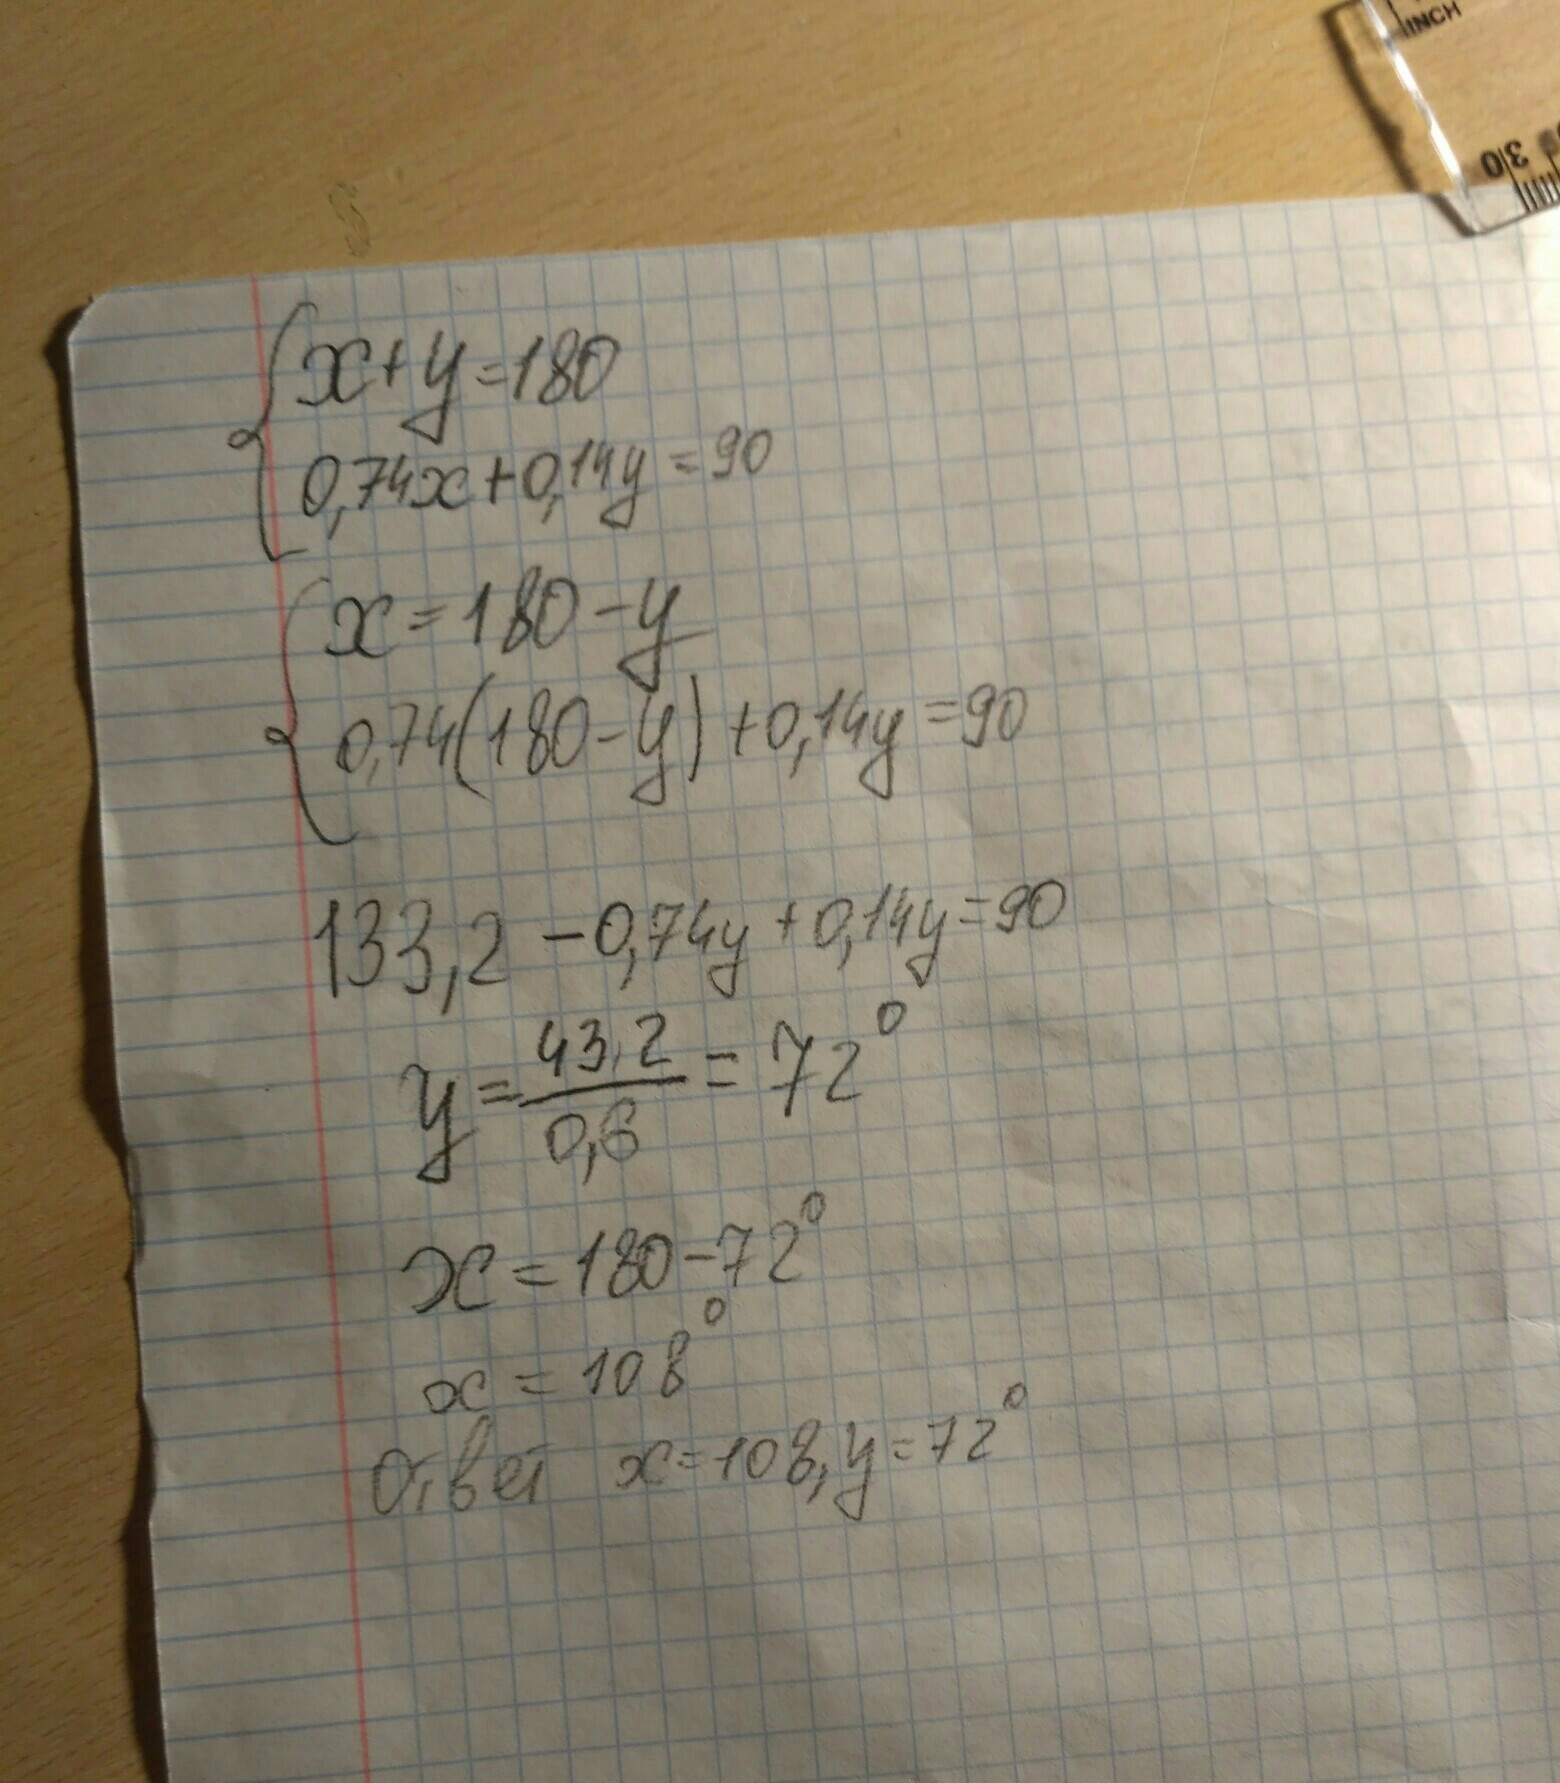 INCH
30
x+y=180
0,74x+0,14y=90
x=180-y
0,74(180-y)+0,14y=90
133,2-0,74y+0,14y=90
y=43,2/0,6=72°
x=180-72°
x=108°
Ответ x=108, y=72°